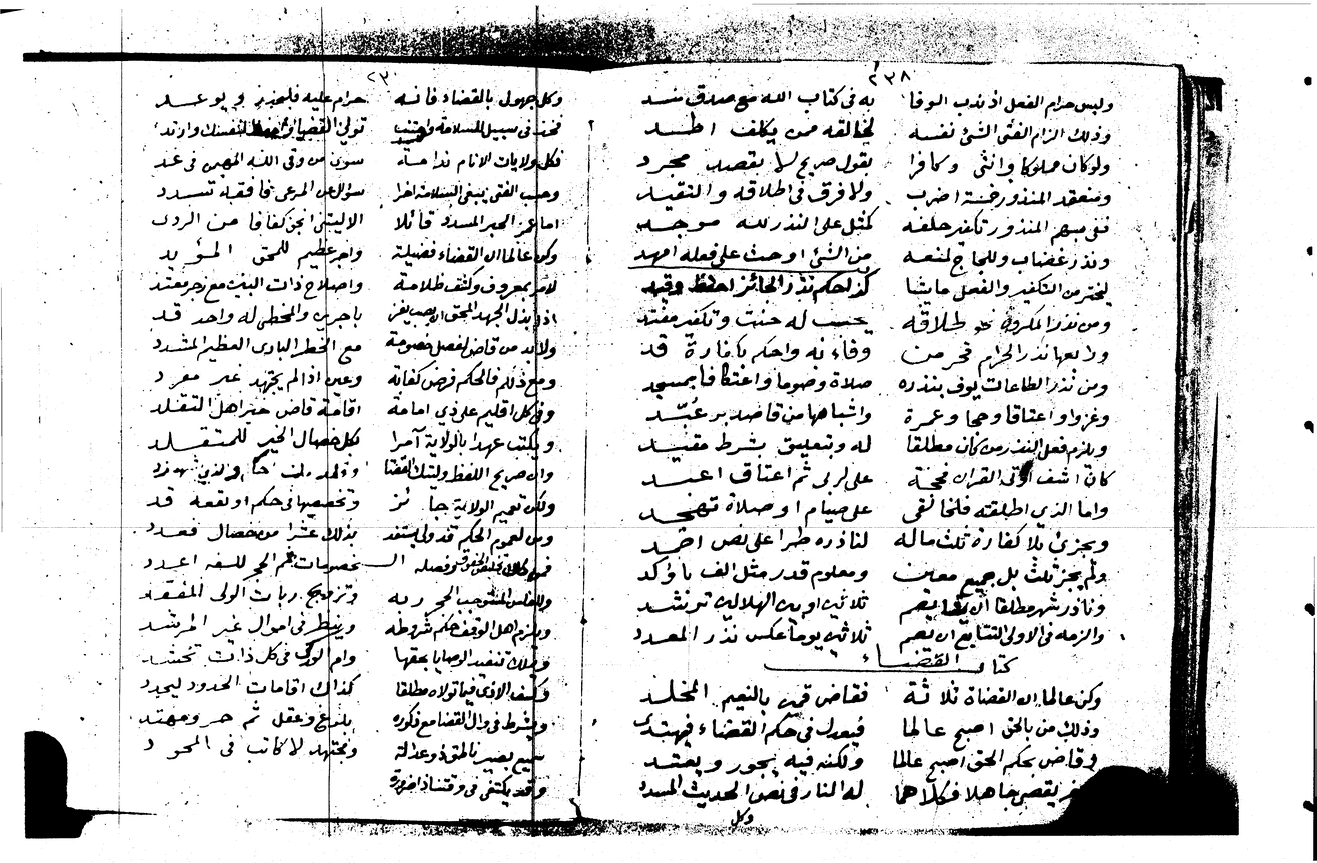 ٢٣٨
وليس حرام الفعل اذ ندب الوفا به في كتاب الله مع صدق مسند
وذلك الزام الفتى الشئ نفسه لخالقه ممن يكلف اطد
ولو كان مملوكا وانثى وكافرا بقول صريح لا بقصد مجرد
ومنعقد المنذور خمسة اضرب ولا فرق في اطلاقه والتقيد
ففي مبهم المنذور تكفير حلفه كمثل على النذر لله موجد
ونذر غضاب وللجاج لمنعه من الشئ او حث على فعله امهد
ليختر من التكفير والفعل ما يشا كذا حكم نذر الجائز احفظ وقيد
ومن نذر المكروه نحو طلاقه يحب له حنث وتكفير مفتد
ولا بعها نذر الحرام فحر من وفاء نه واحكم بكفارة قد
ومن نذر الطاعات يوف بنذره صلاة وصوما واعتكافا بمسجد
وغزوا واعتاقا وحجا وعمرة واشباهها من قاصد بر عبد
ويلزم فعل النذر من كان مطلقا له وتعليق بشرط مقيد
كان اشف اوتي القران فحجة على لربى ثم اعتاق اعبد
واما الذي اطلقته فلخالقى على صيام او صلاة تهجد
ويجزئ بلا كفارة ثلث ماله لناذره طرا على نص احمد
ولم يجز ثلث بل جميع معين ومعلوم قدر مثل الف باوكد
وناذر شهر مطلقا ان يصم ثلاثين او بين الهلالين ترشد
والزمه في الاولى التتابع ان يصم ثلاثين يوما عكس نذر المعدد
كتاب القضاء
وكن عالما ان القضاة ثلاثة فقاض قمين بالنعيم المخلد
وذلك من بالحق اصبح عالما فيعدل في حكم القضاء فيهتدى
وقاض بحكم الحق اصبح عالما ولكنه فيه يجور ويعتد
يقضي جاهلا فكلاهما له النار في نص الحديث المسدد
وكل
٢٣
وكل جهول بالقضاء فانه حرام عليه فليحذر ويوعد
فخذ في سبيل السلامة واجتنب تولى القضا لنفسك وارتد
فكل ولايات الانام ندامة سوى من وقى الله المهيمن في غد
وحسب الفتى يبغى السلامة اخرا سؤال عن المرعى فافقه تسدد
اما عمر الحبر المسدد قائلا الا ليتنى انجو كفافا من الردى
وكن عالما ان القضاء فضيلة واجر عظيم للمحق المؤيد
لامر بمعروف وكشف ظلامة واصلاح ذات البين مع زجر معتد
اذا بذل الجهد المحق ان يصب يفز باجرين والمخطى له واحد قد
ولا بد من قاض لفصل خصومة مع الخطر البادى العظيم المشدد
ومع ذلك فالحكم فرض كفاية وعين اذا لم يجتهد غير مفرد
وفي كل اقليم على ذي امامة اقامة قاض خير اهل التقلد
ويكتب عهدا بالولاية آمرا بكل خصال الخير للمتقلد
وان صريح اللفظ وليتك القضا
ولكن تعميم الولاية جائز وتخصيصها في حكم او بقعة قد
ومن لعموم الحكم قد ولى يستفد بذلك عشرا من خصال فعدد
وفصله الخصومات ثم الحجر للسفه اعدد
وللفلس المستوجب الحجر ربه وتزويج ربات الولى المفقد
ويلزم اهل الوقف حكم شروطه وينظر في اموال غير المرشد
وتلك تنفيذ الوصايا بحقها
وكشف الاذى فيما تولاه مطلقا كذاك اقامات الحدود ليجدد
ويشرط في وال القضا مع ذكوره بلوغ وعقل ثم حر ومهتد
سميع بصير ناطق ذو عدالة ومجتهد لا كاتب في المجود
وقد يكتفى في وقتنا ذا ضرورة